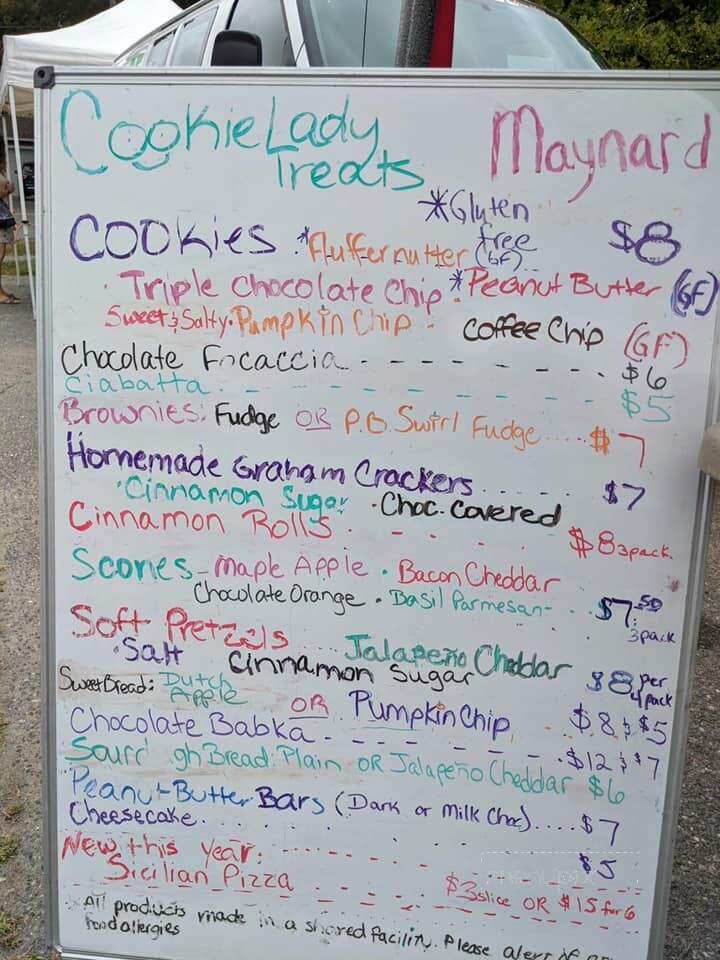 CookieLady Treats Maynard
*Gluten free (GF)
COOKIES: *Fluffernutter $8
· Triple Chocolate Chip · *Peanut Butter (GF)
Sweet & Salty · Pumpkin Chip · Coffee Chip (GF)
Chocolate Focaccia - - - - - - $6
Ciabatta - - - - - - $5
Brownies: Fudge OR P.B. Swirl Fudge .... $7
Homemade Graham Crackers ...... $7
· Cinnamon Sugar · Choc. Covered
Cinnamon Rolls . - . - . $8 3pack
Scones - Maple Apple · Bacon Cheddar
Chocolate Orange · Basil Parmesan - . . $7.50 3pack
Soft Pretzels ..... Jalapeño Cheddar
· Salt Cinnamon Sugar $8 per 4pack
SweetBread: Dutch Apple OR Pumpkin Chip $8 & $5
Chocolate Babka - - - - - - - $12 & $7
Sourd ghBread: Plain OR Jalapeño Cheddar $6
Peanut-Butter Bars (Dark or Milk Choc).... $7
Cheesecake. . . . . . . . $5
New this year:
Sicilian Pizza - - - - - $3slice OR $15 for 6
All products made in a shared facility. Please alert if any
food allergies